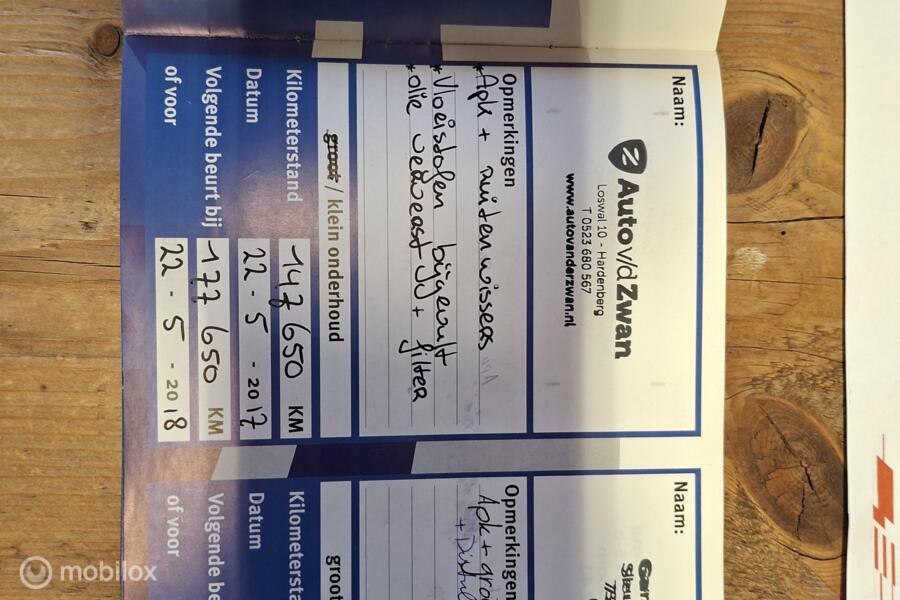 Naam:
Auto v/d Zwan
Loswal 10 - Hardenberg
T 0523 680 567
www.autovanderzwan.nl
Opmerkingen
* Apk + ruitenwissers
* Vloeistofen bijgevult
* olie ververst + filter
groot / klein onderhoud
Kilometerstand 147650 KM
Datum 22 - 5 - 2017
Volgende beurt bij 177 650 KM
of voor 22 - 5 - 2018
Naam:
Opmerkingen
Apk +
+
groot
Kilometersta
Datum
Volgende be
of voor
mobilox